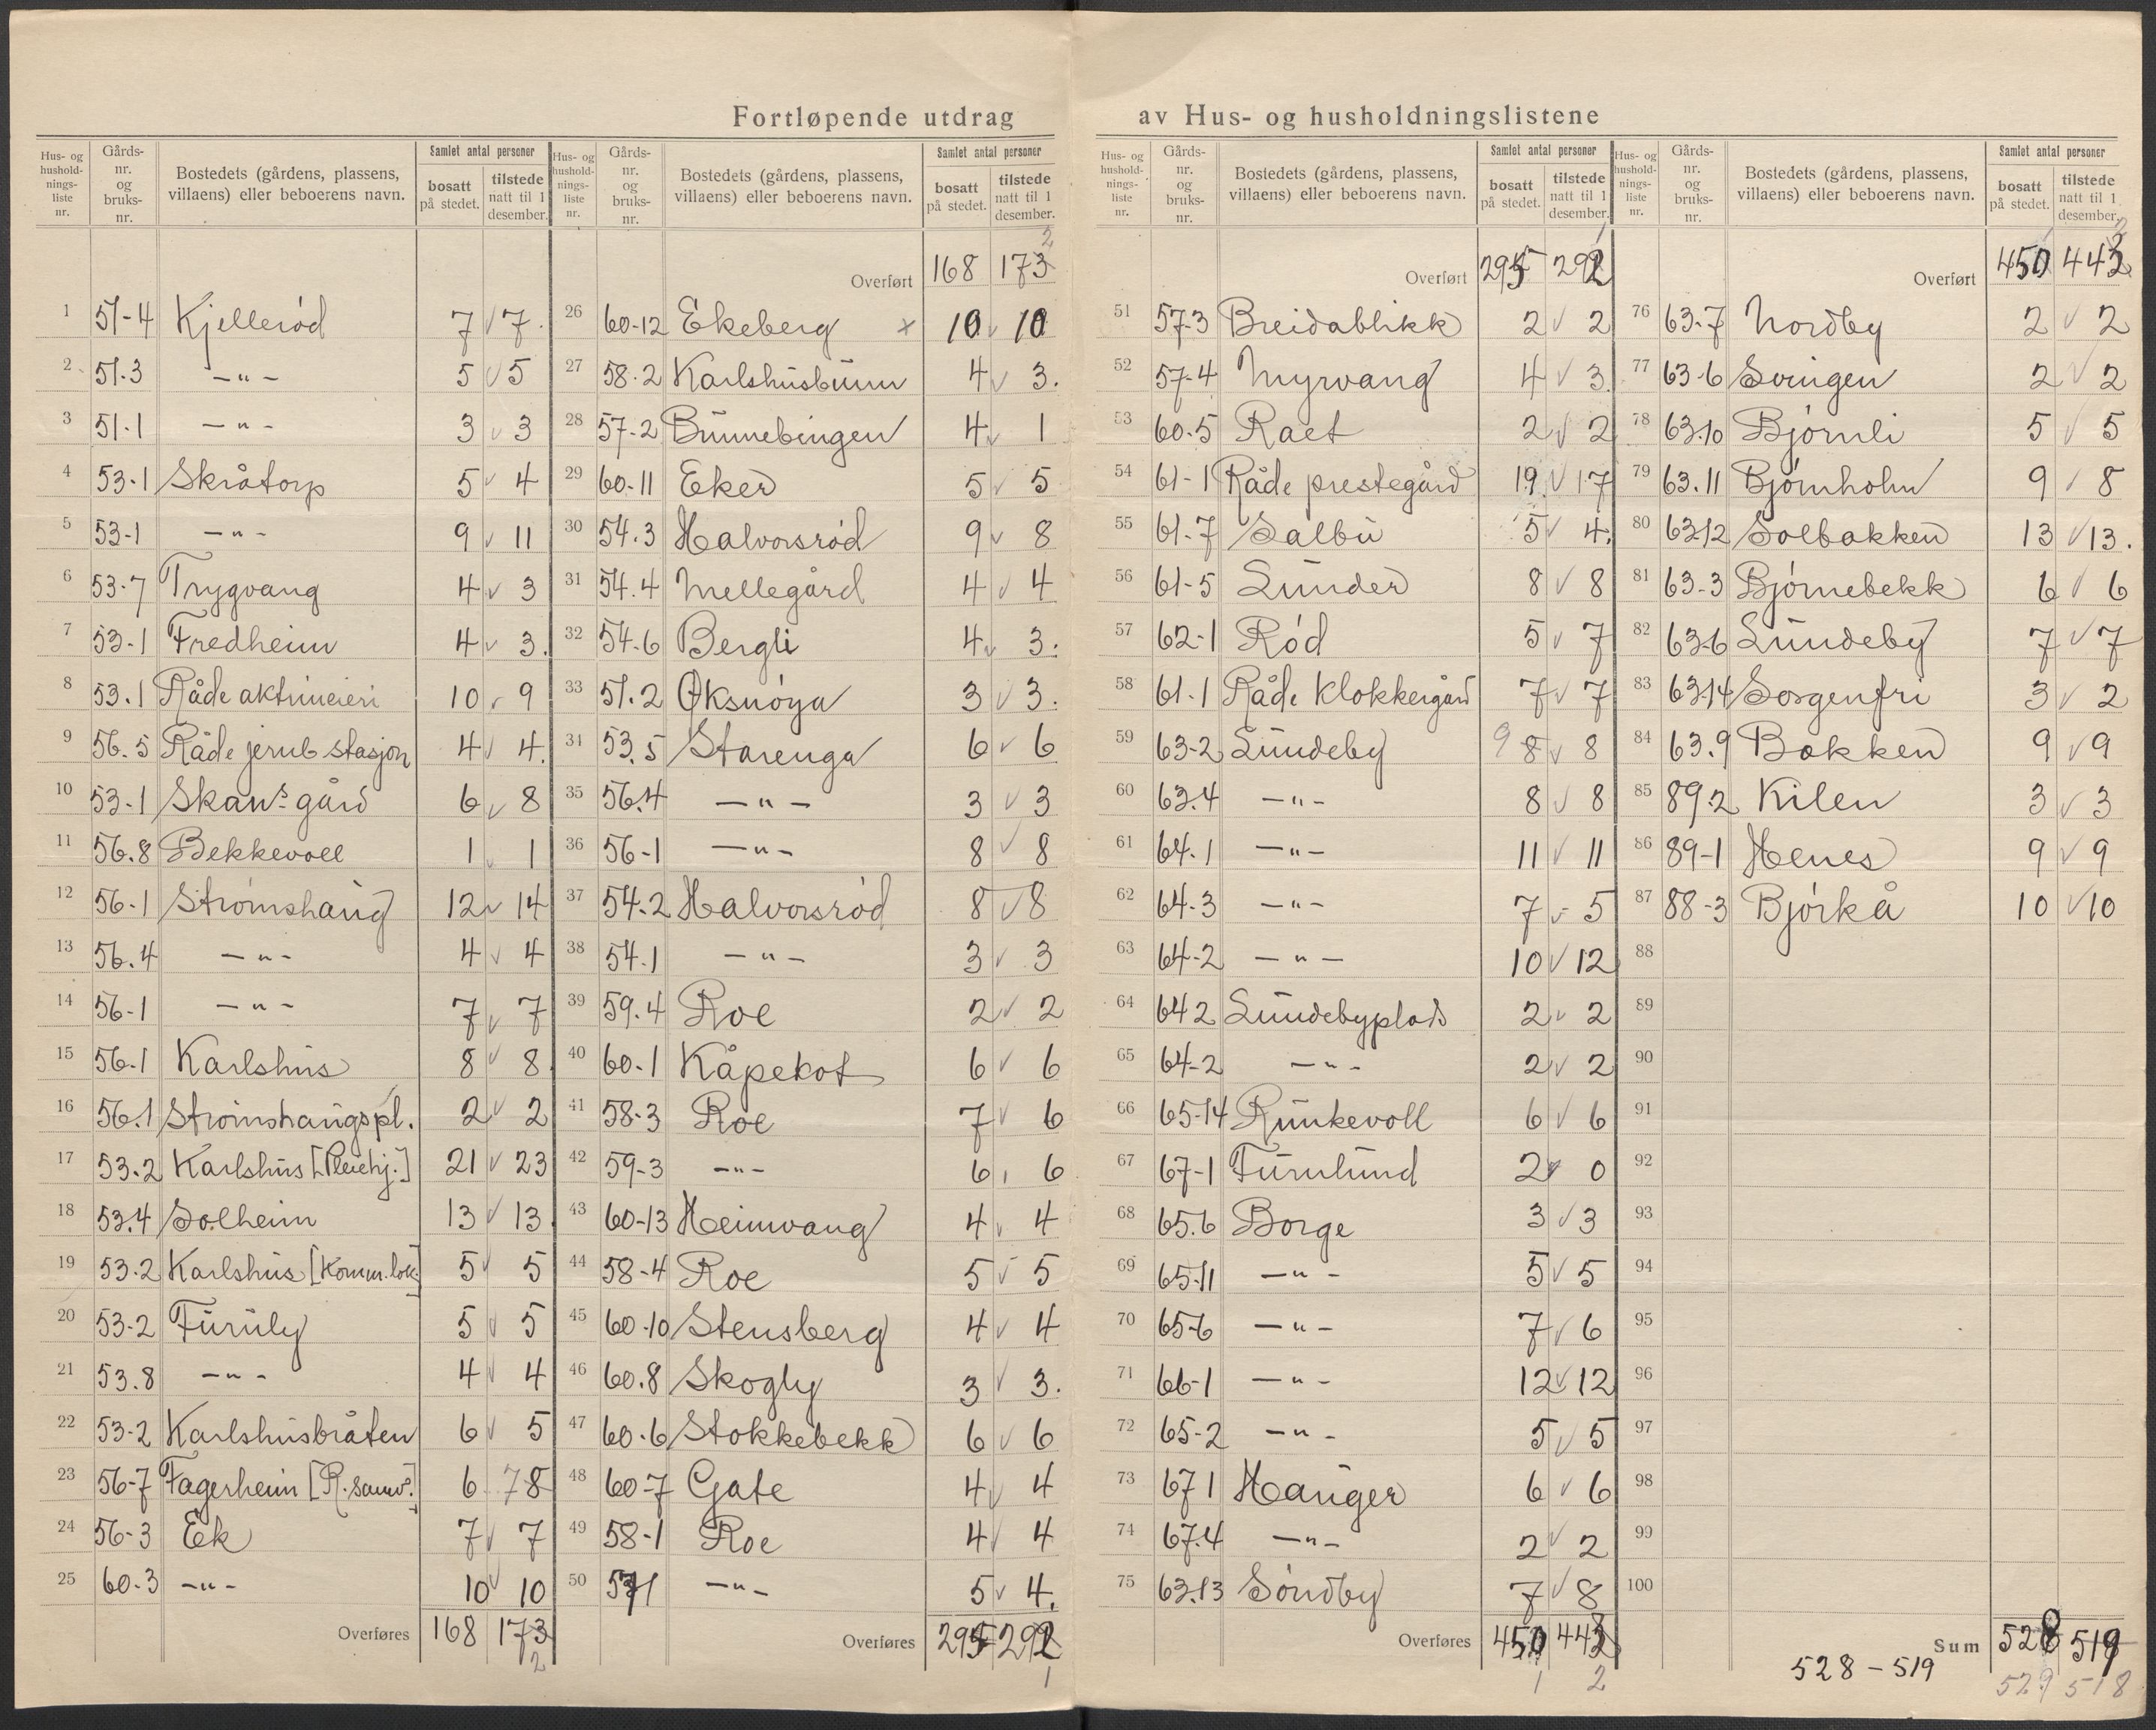 Fortløpende utdrag av Hus- og husholdningslistene
Hus- og hushold-nings-liste nr. | Gårds-nr. og bruks-nr. | Bostedets (gårdens, plassens, villaens) eller beboerens navn. | Samlet antal personer bosatt på stedet. | tilstede natt til 1 desember.
1 51-4 Kjellerød 7 v 7.
2 51.3 -"- 5 v 5
3 51-1 -"- 3 v 3
4 53-1 Skråtorp 5 v 4
5 53-1 -"- 9 v 11
6 53-7 Trygvang 4 v 3
7 53-1 Fredheim 4 v 3.
8 53.1 Råde aktrimeieri 10 v 9
9 56.5 Råde jernb stasjon 4 v 4.
10 53-1 Skans gård 6 v 8
11 56.8 Bekkevoll 1 v 1
12 56-1 Strømshaug 12 v 14
13 56.4 -"- 4 v 4
14 56-1 -"- 7 v 7
15 56-1 Karlshus 8 v 8
16 56.1 Strømshaugspl. 2 v 2
17 53.2 Karlshus [Pleiehj.] 21 v 23
18 53.4 Solheim 13 v 13
19 53.2 Karlshus [Komm. lok.] 5 v 5
20 53-2 Furuly 5 v 5
21 53.8 -"- 4 v 4
22 53-2 Karlshusbråten 6 v 5
23 56-7 Fagerheim [R. samv.] 6 7 8
24 56-3 Ek 7 v 7
25 60-3 -"- 10 v 10
Overføres 168 173
2
Hus- og hushold-nings-liste nr. | Gårds-nr. og bruks-nr. | Bostedets (gårdens, plassens, villaens) eller beboerens navn. | Samlet antal personer bosatt på stedet. | tilstede natt til 1 desember.
2
Overført 168 173
26 60-12 Ekeberg x 10 v 10
27 58.2 Karlshusbunn 4 v 3.
28 57-2 Bunnebingen 4 v 1
29 60-11 Eker 5 v 5
30 54.3 Halvorsrød 9 v 8
31 54.4 Mellegård 4 v 4
32 54-6 Bergli 4 v 3.
33 51.2 Øksnøya 3 v 3.
34 53.5 Starenga 6 v 6
35 56.4 -"- 3 v 3
36 56-1 -"- 8 v 8
37 54.2 Halvorsrød 8 v 8
38 54.1 -"- 3 v 3
39 59.4 Roe 2 v 2
40 60.1 Kåpekot 6 v 6
41 58-3 Roe 7 v 6
42 59-3 -"- 6 6
43 60-13 Heimvang 4 v 4
44 58-4 Roe 5 v 5
45 60-10 Stensberg 4 v 4
46 60.8 Skogly 3 v 3.
47 60-6 Stokkebekk 6 v 6
48 60-7 Gate 4 v 4
49 58-1 Roe 4 v 4
50 -"- 5 v 4.
Overføres 295 292
1
Hus- og hushold-nings-liste nr. | Gårds-nr. og bruks-nr. | Bostedets (gårdens, plassens, villaens) eller beboerens navn. | Samlet antal personer bosatt på stedet. | tilstede natt til 1 desember.
Overført 295 292
51 57-3 Breidablikk 2 v 2
52 57-4 Myrvang 4 v 3.
53 60-5 Raet 2 v 2
54 61-1 Råde prestegård 19 v 17
55 61-7 Salbu 5 v 4.
56 61-5 Lunder 8 v 8
57 62-1 Rød 5 v 7
58 61-1 Råde Klokkergård 7 v 7
59 63-2 Lundeby 9 8 v 8
60 63.4 -"- 8 v 8
61 64.1 -"- 11 v 11
62 64-3 -"- 7 v 5
63 64-2 -"- 10 v 12
64 64 2 Lundebyplads 2 v 2
65 64-2 -"- 2 v 2
66 65-14 Runkevoll 6 v 6
67 67-1 Furulund 2 v 0
68 65.6 Borge 3 v 3
69 65-11 -"- 5 v 5
70 65-6 -"- 7 v 6
71 66-1 -"- 12 v 12
72 65-2 -"- 5 v 5
73 67 1 Hauger 6 v 6
74 67.4 -"- 2 v 2
75 63.13 Søndby 7 v 8
Overføres 450 443
1 2
Hus- og hushold-nings-liste nr. | Gårds-nr. og bruks-nr. | Bostedets (gårdens, plassens, villaens) eller beboerens navn. | Samlet antal personer bosatt på stedet. | tilstede natt til 1 desember.
Overført 450 443
76 63-7 Nordby 2 v 2
77 63-6 Svingen 2 v 2
78 63.10 Bjørnli 5 v 5
79 63.11 Bjørnholm 9 v 8
80 63-12 Solbakken 13 v 13.
81 63-3 Bjørnebekk 6 v 6
82 63-6 Lundeby 7 v 7
83 63-14 Sorgenfri 3 v 2
84 63.9 Bakken 9 v 9
85 89.2 Kilen 3 v 3
86 89-1 Henes 9 v 9
87 88-3 Bjørkå 10 v 10
88
89
90
91
92
93
94
95
96
97
98
99
100
Sum 528 519
528 - 519
529 518